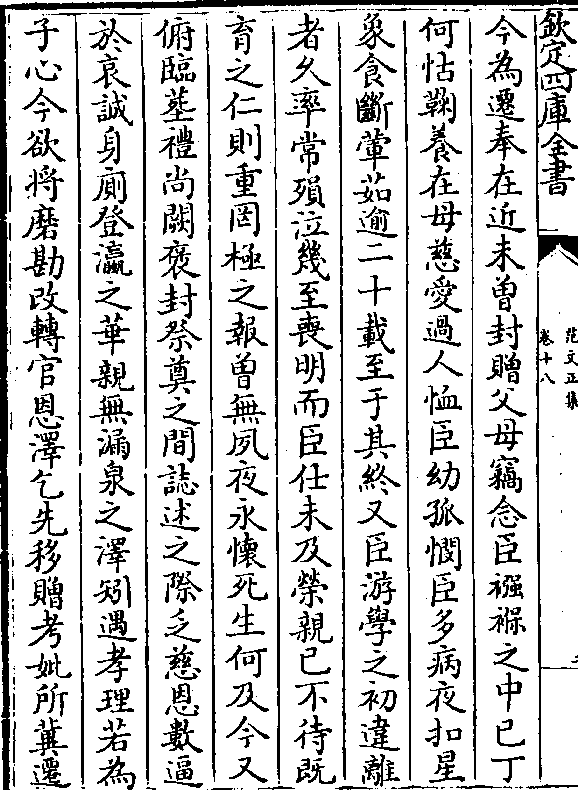 欽定四庫全書
范文正集
卷十八
今為遷奉在近未曾封贈父母竊念臣襁褓之中已丁
何怙鞠養在母慈愛過人恤臣幼孤憫臣多病夜扣星
象食斷葷茹逾二十載至于其終又臣游學之初違離
者久率常殞泣幾至喪明而臣仕未及榮親已不待既
育之仁則重罔極之報曾無夙夜永懷死生何及今又
俯臨塟禮尚闕褒封祭奠之間誌述之際乏慈恩數逼
於哀誠身廁登瀛之華親無漏泉之澤矧遇孝理若為
子心今欲將磨勘改轉官恩澤乞先移贈考妣所冀遷